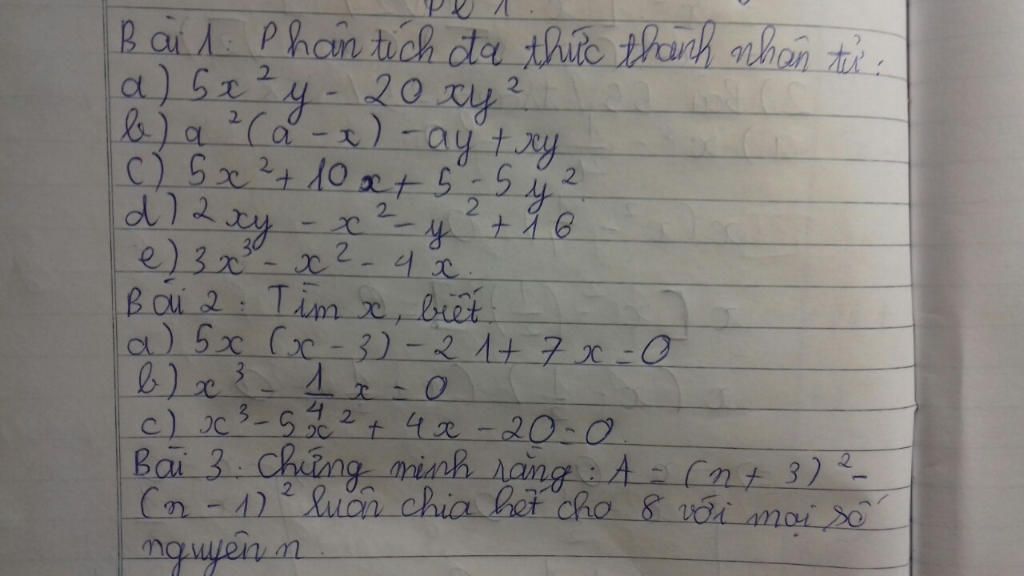 Bài 1: Phân tích đa thức thành nhân tử:
a) 5x²y - 20xy²
b) a²(a - x) - ay + xy
c) 5x² + 10x + 5 - 5y²
d) 2xy - x² - y² + 16
e) 3x³ - x² - 4x.
Bài 2: Tìm x, biết
a) 5x (x - 3) - 21 + 7x = 0
b) x³ - 1/4 x = 0
c) x³ - 5x² + 4x - 20 = 0.
Bài 3. Chứng minh rằng: A = (n + 3)² -
(n - 1)² luôn chia hết cho 8 với mọi số
nguyên n.